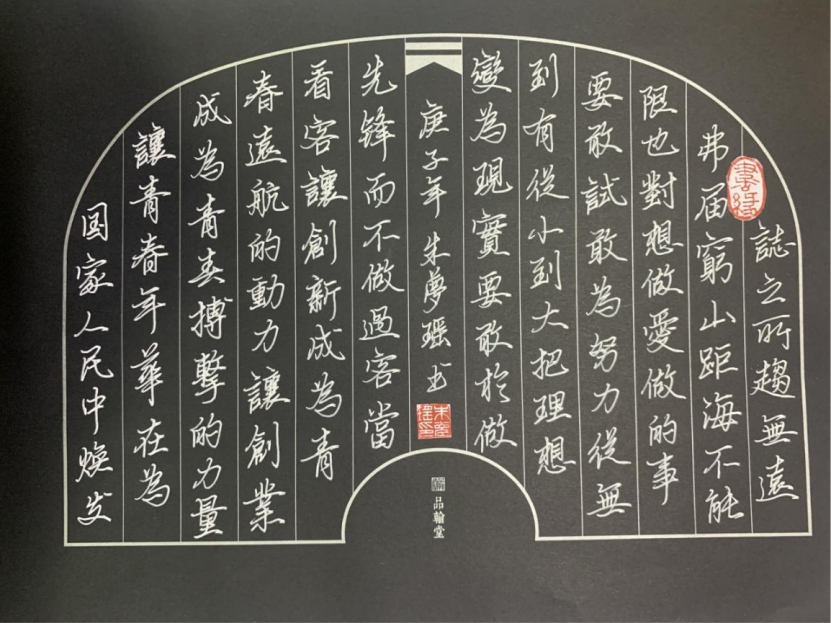 誌之所趨無遠
弗届窮山距海不能
限也對想做愛做的事
要敢試敢為努力從無
到有從小到大把理想
變為現實要敢於做
先鋒而不做過客當
看客讓創新成為青
春遠航的動力讓創業
成為青春搏擊的力量
讓青春年華在為
国家人民中焕发
庚子年朱夢瑶书
品翰堂